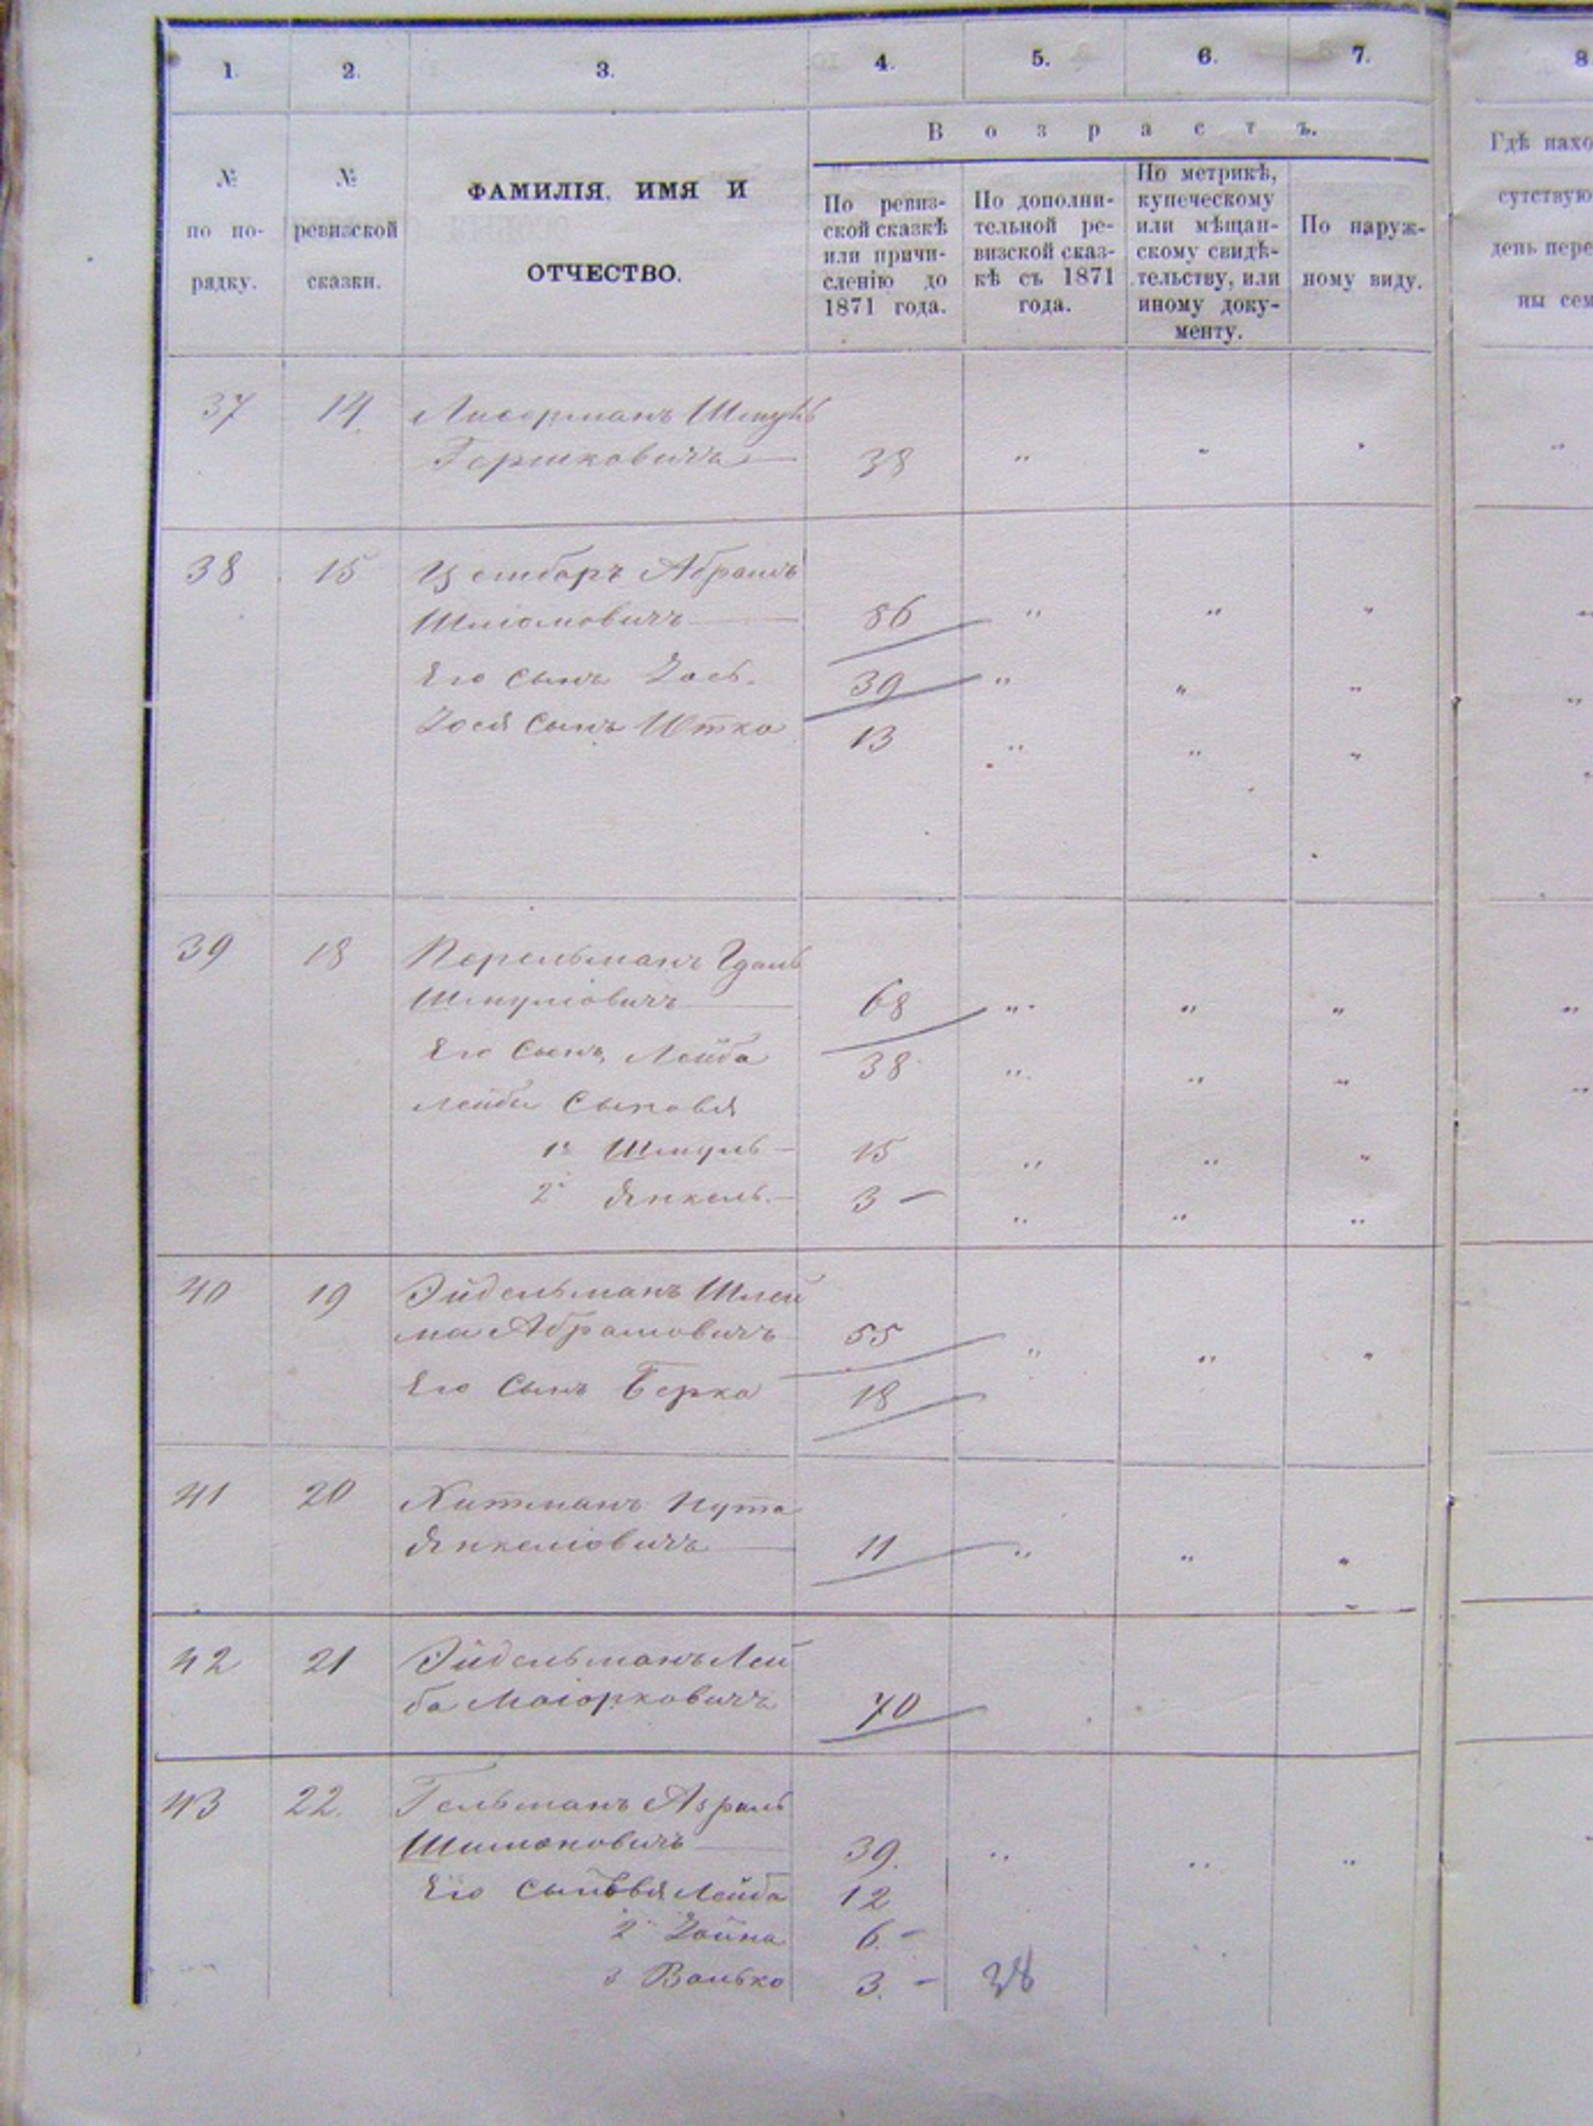 1. 2. 3. 4. 5. 6. 7. 8
Возрастъ.
№
по по-
рядку.
№
ревизской
сказки.
ФАМИЛІЯ, ИМЯ И
ОТЧЕСТВО.
По ревиз-
ской сказкѣ
или причи-
сленію до
1871 года.
По дополни-
тельной ре-
визской сказ-
кѣ съ 1871
года.
По метрикѣ,
купеческому
или мѣщан-
скому свидѣ-
тельству, или
иному доку-
менту.
По наруж-
ному виду.
Гдѣ нахо
сутствую
день пере
ны сем
37 14. Лисерманъ Шмуль
Гершковичъ 38 " " "
38 15 Абрамъ
Шліомовичъ 86 " " "
Его сынъ Зось. 39 " " "
Зося сынъ Ютко 13 " " "
39 18 Перельманъ Гдаль
Шмуліовичъ 68 " " "
Его сынъ Лейба 38 " " "
Лейби сыновья
1й Шмуль 15 " " "
2й Янкель. 3 – " " "
40 19 Эйдельманъ Шлей
ма Абрамовичъ 55 " " "
Его сынъ Берко 18
41 20 Хитманъ Нута
Янкеліовичъ 11 " " "
42 21 Эйдельманъ Лей
ба Маіорковичъ 70
43 22. Гельманъ Азриль
Шимоновичъ 39. " " "
Его сыновья Лейба 12
2 Зойна 6. –
3 Волько 3. – 38